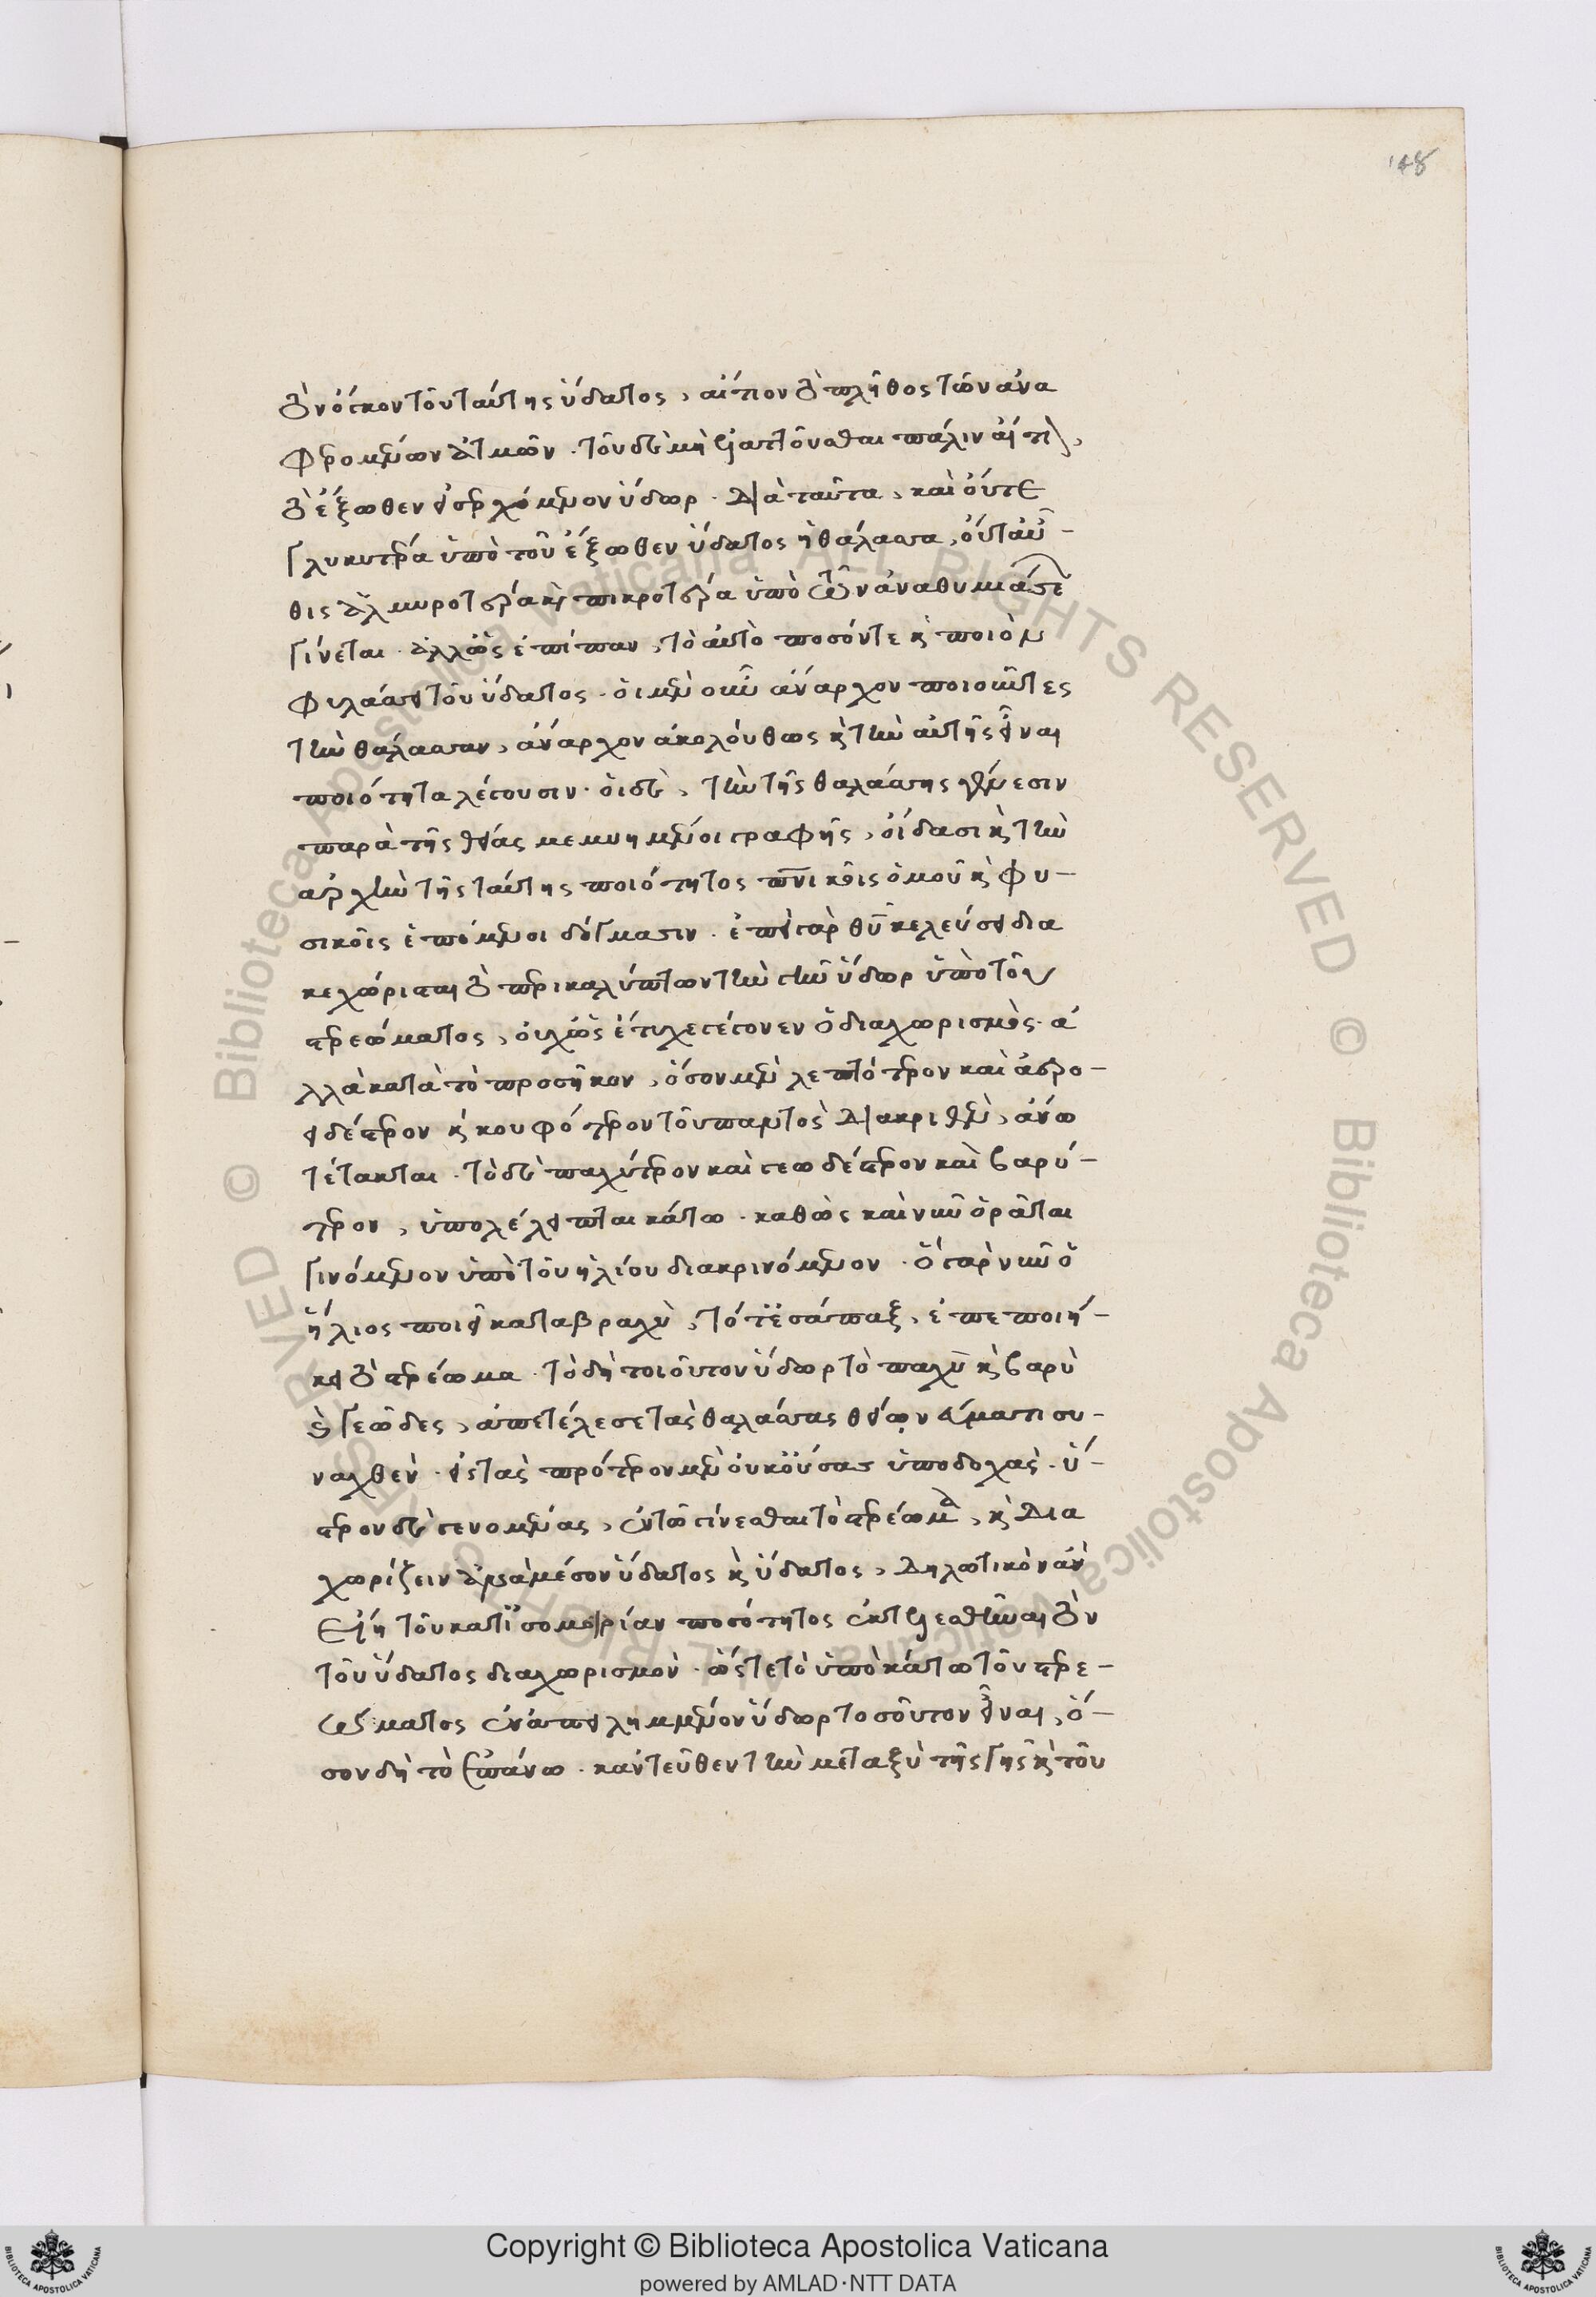 148
τὸν ὄγκον τοῦ ταύτης ὕδατος, αἴτιον τὸ πλῆθος τῶν ἀνα
φερομένων ἀτμῶν. τοῦ δὲ μὴ ἐλαττοῦσθαι πάλιν αἴτιον,
τὸ ἔξωθεν εἰσερχόμενον ὕδωρ. διὰ ταῦτα, καὶ οὔτε
γλυκυτέρα ὑπὸ τοῦ ἔξωθεν ὕδατος ἡ θάλασσα, οὔτ' αὖ-
θις ἁλμυροτέρα καὶ πικροτέρα ὑπὸ τῶν ἀναθυμιάσεων
γίνεται. ἀλλ' ὡς ἐπίπαν, τὸ αὐτὸ ποσόν τε καὶ ποιὸν
φυλάσσει τοῦ ὕδατος. οἱ μὲν οὖν ἄναρχον ποιοῦντες
τὴν θάλασσαν, ἄναρχον ἀκολούθως καὶ τὴν αὐτῆς εἶναι
ποιότητα λέγουσιν. οἱ δὲ, τὴν τῆς θαλάσσης γένεσιν
παρὰ τῆς θείας μεμυημένοι γραφῆς, οἴδασι καὶ τὴν
ἀρχὴν τῆς ταύτης ποιότητος πνικοῖς ὁμοῦ καὶ φυ-
σικοῖς ἑπόμενοι δόγμασιν. ἐπεὶ γὰρ θυ κελεύσει δια
κεχώρισται τὸ περικαλύπτων τὴν γῆν ὕδωρ ὑπὸ τοῦ
στερεώματος, οὐχ ὡς ἔτυχε γέγονεν ὁ διαχωρισμὸς. ἀ
λλὰ κατὰ τὸ προσῆκον, ὅσον μὲν λεπτότερον καὶ ἀερο-
ειδέστερον καὶ κουφότερον τοῦ παντὸς διακριθὲν, ἄνω
τέτακται. τὸ δὲ παχύτερον καὶ γεωδέστερον καὶ βαρύ-
τερον, ὑπολέλειπται κάτω. καθὼς καὶ νῦν ὁρᾶται
γινόμενον ὑπὸ τοῦ ἡλίου διακρινόμενον. ὃ γὰρ νῦν ὁ
ἥλιος ποιεῖ κατὰ βραχὺ, τότε εἰσάπαξ, ἐπεποιή-
κει τὸ στερέωμα. τὸ δὴ τοιοῦτον ὕδωρ τὸ παχὺ καὶ βαρὺ
καὶ γεῶδες, ἀπετέλεσε τὰς θαλάσσας θείῳ νεύματι συ-
ναχθὲν. εἰς τὰς πρότερον μὲν οὐκ οὔσας ὑποδοχὰς. ὕ-
στερον δὲ γενομένας, ἐν τῷ γίνεσθαι τὸ στερέωμα, καὶ δια
χωρίζειν ἀνὰ μέσον ὕδατος καὶ ὕδατος, δηλωτικὸν ἂν
εἴη τοῦ κατ' ἰσομοιρίαν ποσότητος ἐκτελεσθῆναι τὸν
τοῦ ὕδατος διαχωρισμὸν. ὥστε τὸ ὑποκάτω τοῦ στερε-
ώματος ἐναπειλημμένον ὕδωρ τοσοῦτον εἶναι, ὅ-
σον δὴ τὸ ἐπάνω. κἀντεῦθεν τὴν μεταξὺ τῆς γῆς καὶ τοῦ
Copyright © Biblioteca Apostolica Vaticana
powered by AMLAD·NTT DATA